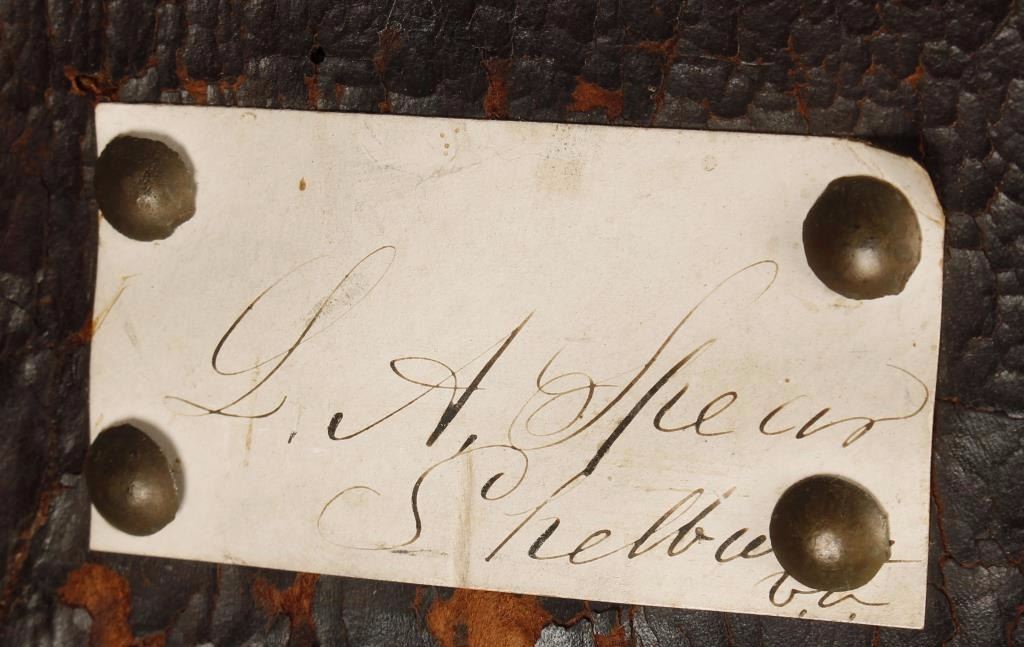 L. A. Spear
Shelbu